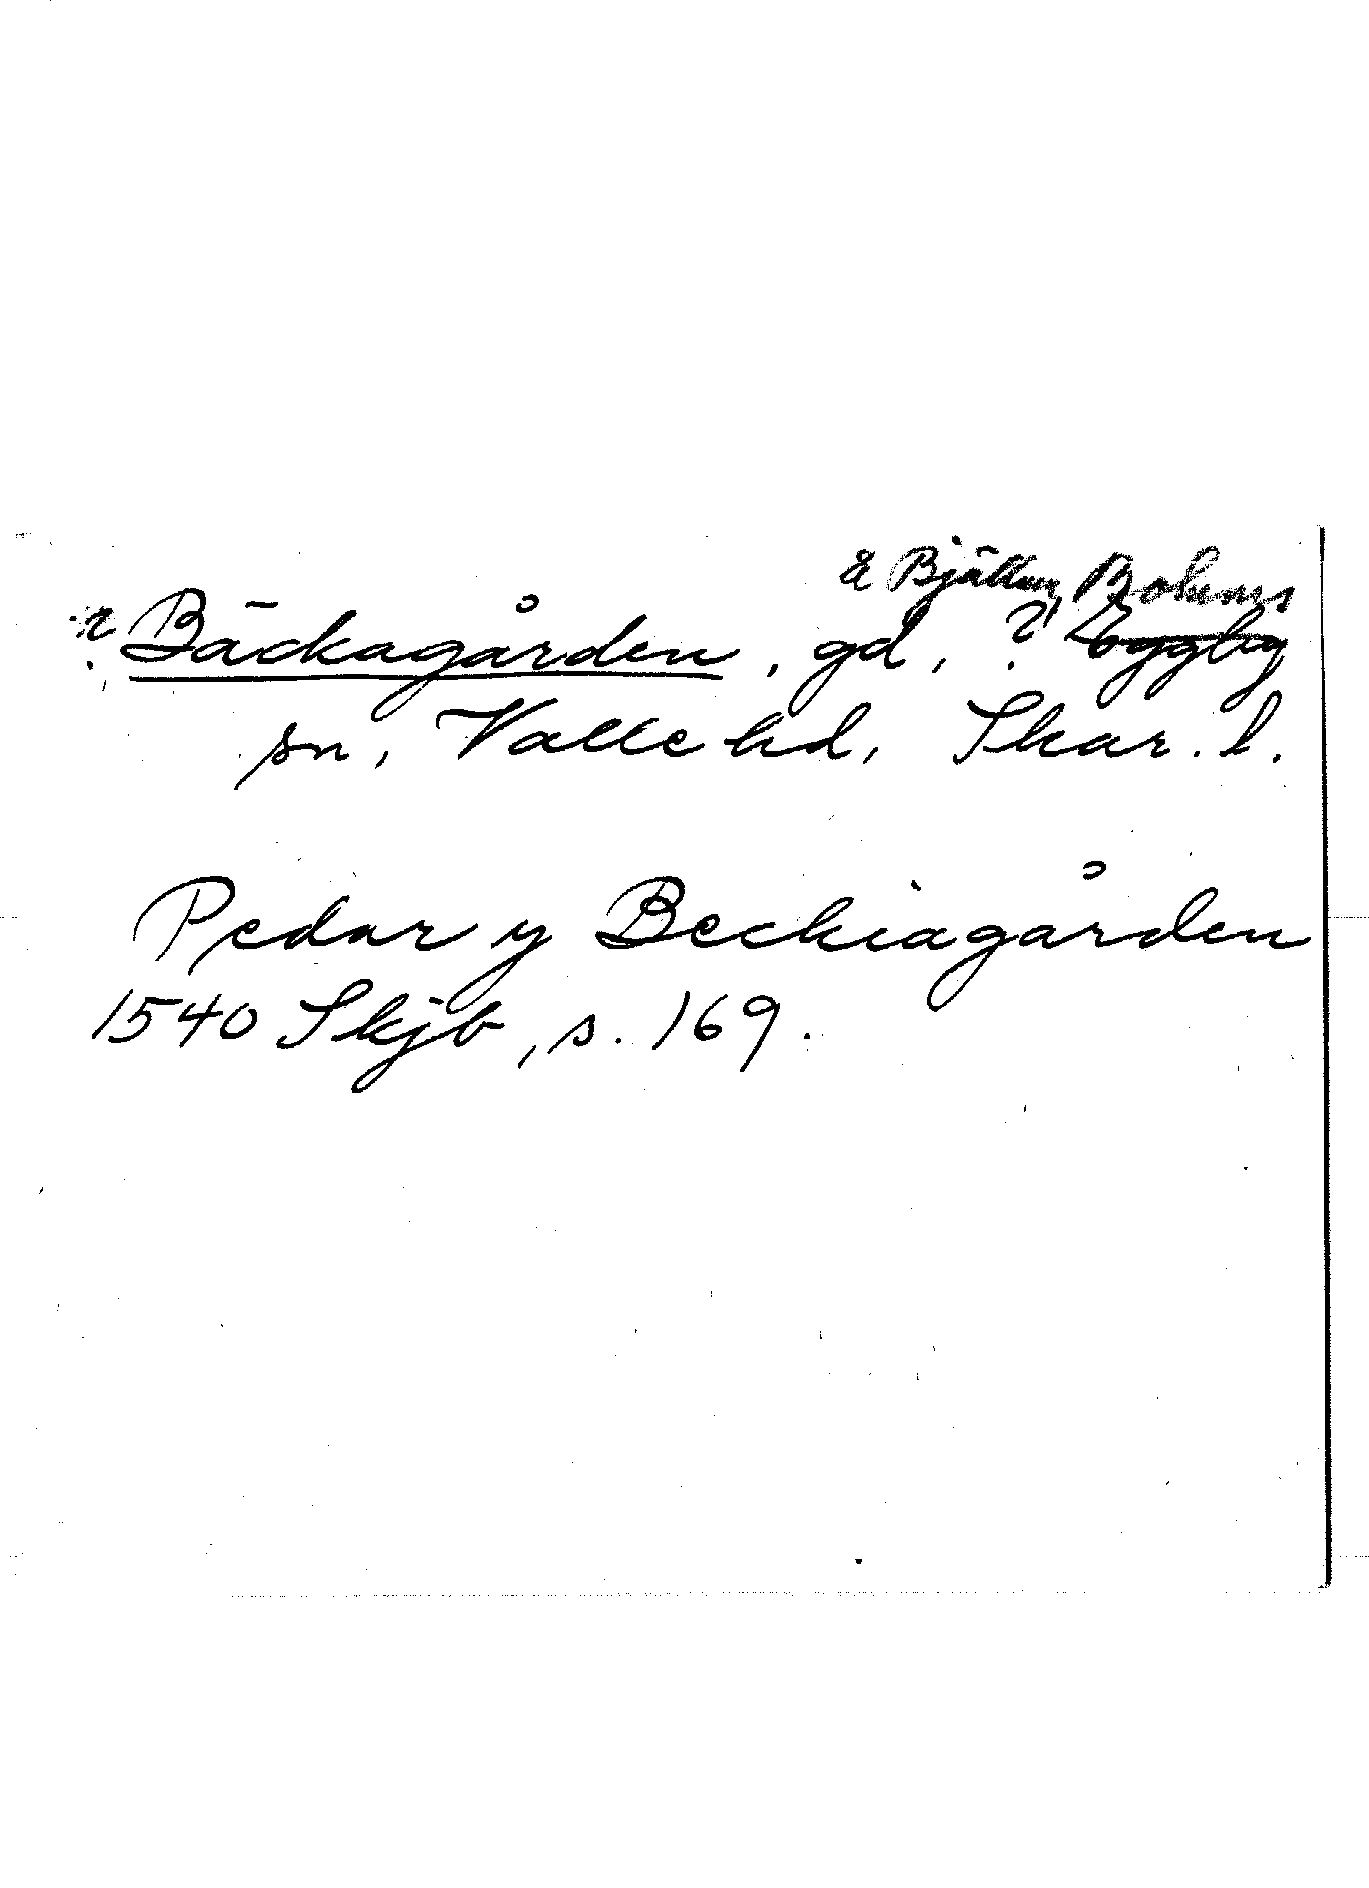 Bjällum Bolums
? Bäckagården, gd, ? Eggby
sn, Valle hd, Skar. l.
Pedar y Beckiagården
1540 Skjb, s. 169.